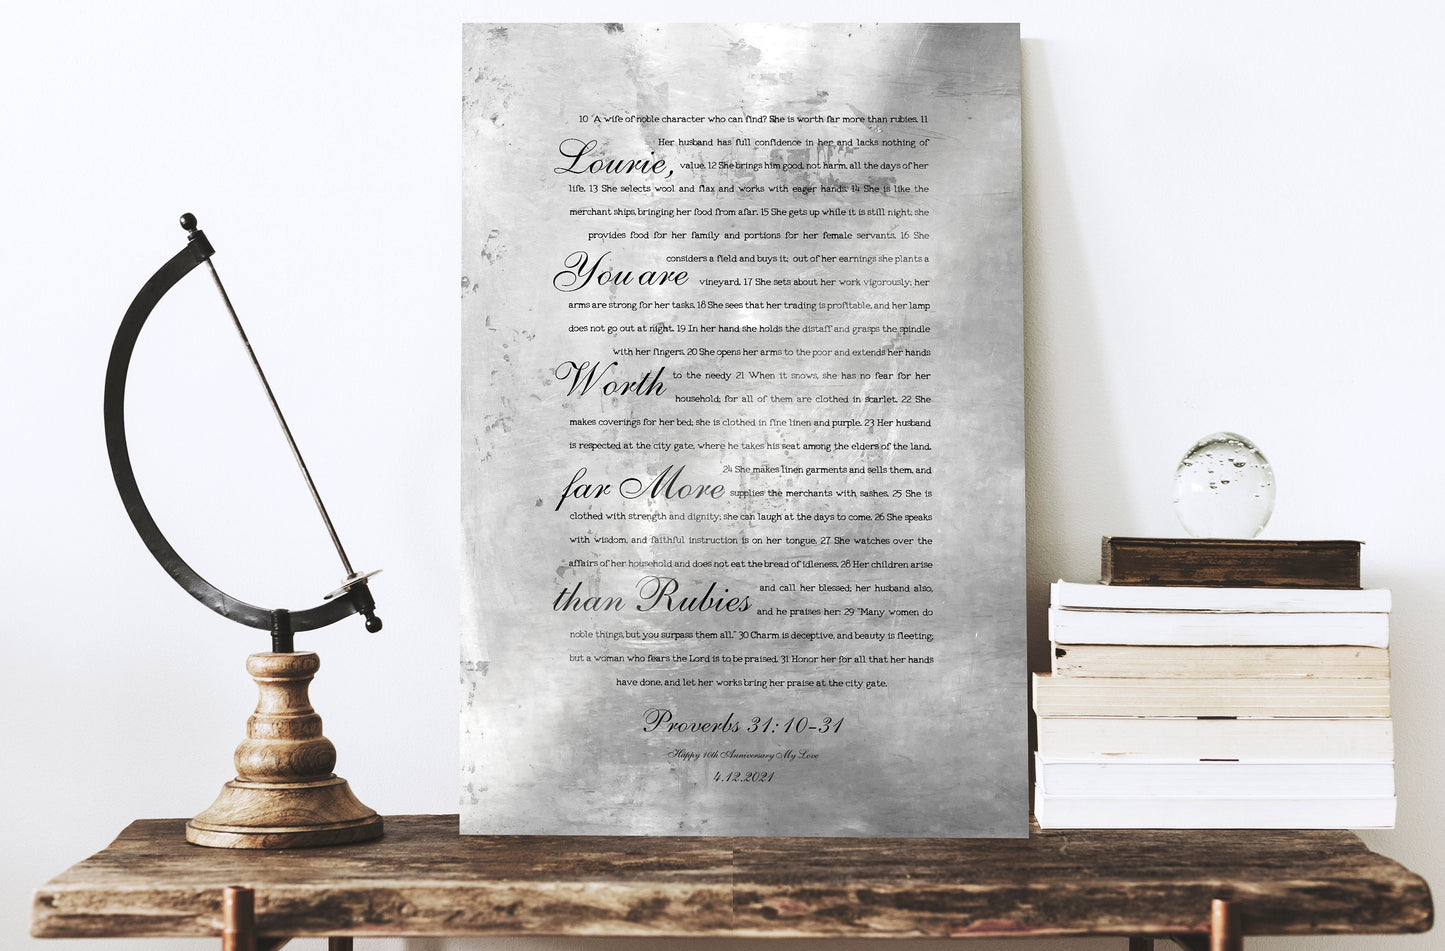 10 "A wife of noble character who can find? She is worth far more than rubies. 11
Her husband has full confidence in her and lacks nothing of
Lourie, value. 12 She brings him good, not harm, all the days of her
life. 13 She selects wool and flax and works with eager hands. 14 She is like the
merchant ships, bringing her food from afar. 15 She gets up while it is still night; she
provides food for her family and portions for her female servants. 16 She
considers a field and buys it; out of her earnings she plants a
You are vineyard. 17 She sets about her work vigorously; her
arms are strong for her tasks. 18 She sees that her trading is profitable, and her lamp
does not go out at night. 19 In her hand she holds the distaff and grasps the spindle
with her fingers. 20 She opens her arms to the poor and extends her hands
Worth to the needy 21 When it snows, she has no fear for her
household; for all of them are clothed in scarlet. 22 She
makes coverings for her bed; she is clothed in fine linen and purple. 23 Her husband
is respected at the city gate, where he takes his seat among the elders of the land.
24 She makes linen garments and sells them, and
far More supplies the merchants with sashes. 25 She is
clothed with strength and dignity; she can laugh at the days to come. 26 She speaks
with wisdom, and faithful instruction is on her tongue. 27 She watches over the
affairs of her household and does not eat the bread of idleness. 28 Her children arise
and call her blessed; her husband also,
than Rubies and he praises her: 29 "Many women do
noble things, but you surpass them all." 30 Charm is deceptive, and beauty is fleeting;
but a woman who fears the Lord is to be praised. 31 Honor her for all that her hands
have done, and let her works bring her praise at the city gate.
Proverbs 31:10-31
Happy 10th Anniversary My Love
4.12.2021